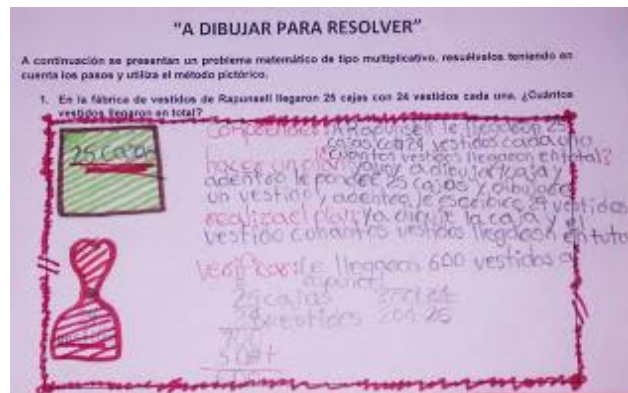 "A DIBUJAR PARA RESOLVER"
A continuación se presentan un problema matemático de tipo multiplicativo, resuélvelos teniendo en
cuenta los pasos y utiliza el método pictórico.
1. En la fábrica de vestidos de Rapunsell llegaron 25 cajas con 24 vestidos cada una, ¿Cuántos
vestidos llegaron en total?
25 cajas
comprender: A Rapunsell le llegaron 25
cajas con 24 vestidos cada una
¿cuantos vestidos llegaron en total?
hacer un plan: voy a dibujar caja y
adentro le pondre 25 cajas y dibujare
un vestido y adentro le escribire 24 vestidos
realizar el plan Ya dibuje la caja y el
vestido cuhantos vestidos llegaron en
Verificar: le llegaron 600 vestidos a
25 cajas
24 vestidos